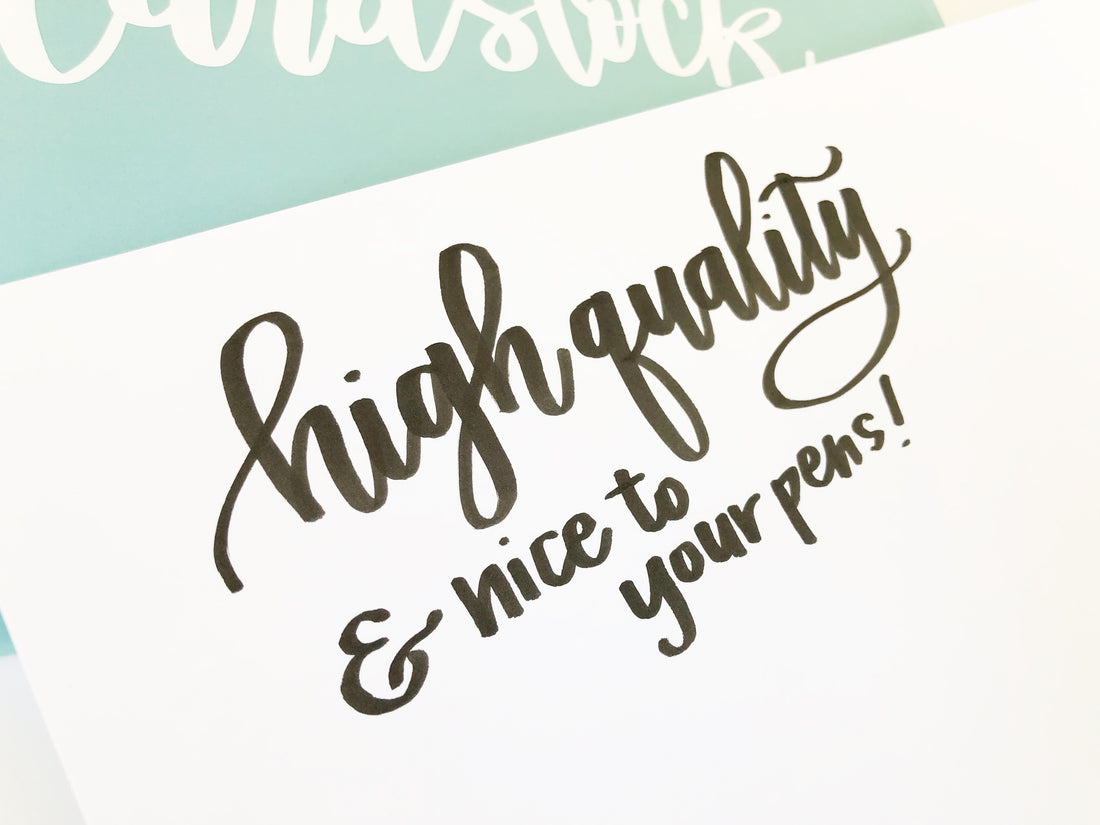 Cardstock
high quality
& nice to
your pens!